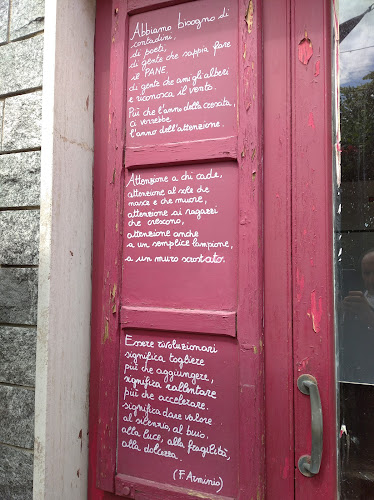 Abbiamo bisogno di
contadini,
di poeti,
di gente che sappia fare
il PANE,
di gente che ami gli alberi
e riconosca il vento.
Più che l'anno della crescita,
ci vorrebbe
l'anno dell'attenzione.
Attenzione a chi cade,
attenzione al sole che
nasce e che muore,
attenzione ai ragazzi
che crescono,
attenzione anche
a un semplice lampione,
a un muro scrostato.
Essere rivoluzionari
significa togliere
più che aggiungere,
significa rallentare
più che accelerare,
significa dare valore
al silenzio, al buio,
alla luce, alla fragilità,
alla dolcezza.
(F. Arminio)